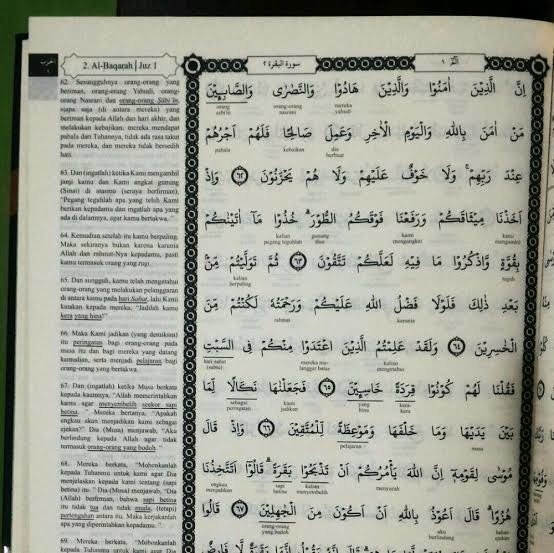 2. Al-Baqarah | Juz 1
سورة البقرة ٢
62. Sesungguhnya orang-orang yang
beriman, orang-orang Yahudi, orang-
orang Nasrani dan orang-orang Sābi'īn,
siapa saja (di antara mereka) yang
beriman kepada Allah dan hari akhir, dan
melakukan kebajikan, mereka mendapat
pahala dari Tuhannya, tidak ada rasa takut
pada mereka, dan mereka tidak bersedih
hati.
63. Dan (ingatlah) ketika Kami mengambil
janji kamu dan Kami angkat gunung
(Sinai) di atasmu (seraya berfirman),
"Pegang teguhlah apa yang telah Kami
berikan kepadamu dan ingatlah apa yang
ada di dalamnya, agar kamu bertakwa."
64. Kemudian setelah itu kamu berpaling.
Maka sekiranya bukan karena karunia
Allah dan rahmat-Nya kepadamu, pasti
kamu termasuk orang yang rugi.
65. Dan sungguh, kamu telah mengetahui
orang-orang yang melakukan pelanggaran
di antara kamu pada hari Sabat, lalu Kami
katakan kepada mereka, "Jadilah kamu
kera yang hina!"
66. Maka Kami jadikan (yang demikian)
itu peringatan bagi orang-orang pada
masa itu dan bagi mereka yang datang
kemudian, serta menjadi pelajaran bagi
orang-orang yang bertakwa.
67. Dan (ingatlah) ketika Musa berkata
kepada kaumnya, "Allah memerintahkan
kamu agar menyembelih seekor sapi
betina." Mereka bertanya, "Apakah
engkau akan menjadikan kami sebagai
ejekan?" Dia (Musa) menjawab, "Aku
berlindung kepada Allah agar tidak
termasuk orang yang bodoh."
68. Mereka berkata, "Mohonkanlah
kepada Tuhanmu untuk kami agar Dia
menjelaskan kepada kami tentang (sapi
betina) itu." Dia (Musa) menjawab, "Dia
(Allah) berfirman, bahwa sapi betina
itu tidak tua dan tidak muda, (tetapi)
pertengahan antara itu. Maka kerjakanlah
apa yang diperintahkan kepadamu."
69. Mereka berkata, "Mohonkanlah
kepada Tuhanmu untuk kami agar Dia
اِنَّ الَّذِيْنَ اٰمَنُوْا وَالَّذِيْنَ هَادُوْا وَالنَّصٰرٰى وَالصَّابِـِٕيْنَ
orang sabi'in orang-orang nasrani mereka yahudi
مَنْ اٰمَنَ بِاللّٰهِ وَالْيَوْمِ الْاٰخِرِ وَعَمِلَ صَالِحًا فَلَهُمْ اَجْرُهُمْ
pahala kebaikan dia berbuat
عِنْدَ رَبِّهِمْ وَلَا خَوْفٌ عَلَيْهِمْ وَلَا هُمْ يَحْزَنُوْنَ ٦٢ وَاِذْ
اَخَذْنَا مِيْثَاقَكُمْ وَرَفَعْنَا فَوْقَكُمُ الطُّوْرَ خُذُوْا مَآ اٰتَيْنٰكُمْ
kalian pegang teguhlah gunung thur kami mengangkat kami mengambil
بِقُوَّةٍ وَّاذْكُرُوْا مَا فِيْهِ لَعَلَّكُمْ تَتَّقُوْنَ ٦٣ ثُمَّ تَوَلَّيْتُمْ مِّنْ
kalian berpaling teguh
بَعْدِ ذٰلِكَ فَلَوْلَا فَضْلُ اللّٰهِ عَلَيْكُمْ وَرَحْمَتُهٗ لَكُنْتُمْ مِّنَ
rahmat karunia
الْخٰسِرِيْنَ ٦٤ وَلَقَدْ عَلِمْتُمُ الَّذِيْنَ اعْتَدَوْا مِنْكُمْ فِى السَّبْتِ
hari sabat (sabtu) mereka melanggar batas kalian mengetahui
فَقُلْنَا لَهُمْ كُوْنُوْا قِرَدَةً خَاسِـِٕيْنَ ٦٥ فَجَعَلْنٰهَا نَكَالًا لِّمَا
sebagai peringatan kami jadikan yang hina kera-kera
بَيْنَ يَدَيْهَا وَمَا خَلْفَهَا وَمَوْعِظَةً لِّلْمُتَّقِيْنَ ٦٦ وَاِذْ قَالَ
pelajaran masa
مُوْسٰى لِقَوْمِهٖٓ اِنَّ اللّٰهَ يَأْمُرُكُمْ اَنْ تَذْبَحُوْا بَقَرَةً قَالُوْٓا اَتَتَّخِذُنَا
engkau menjadikan sapi betina kalian menyembelih menyuruh
هُزُوًا قَالَ اَعُوْذُ بِاللّٰهِ اَنْ اَكُوْنَ مِنَ الْجٰهِلِيْنَ ٦٧ قَالُوا
orang yang bodoh aku berlindung bahan ejekan